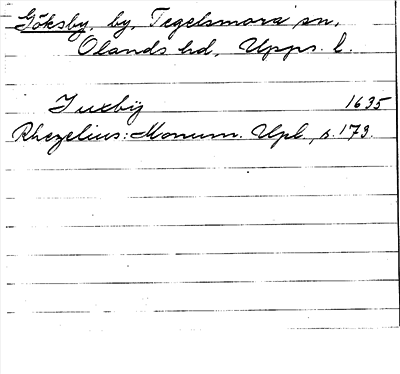 Göksby, by, Tegelsmora sn,
Olands hd, Upps. l.
Juxbÿ 1635
Rhezelius: Monum. Upl., s. 173.